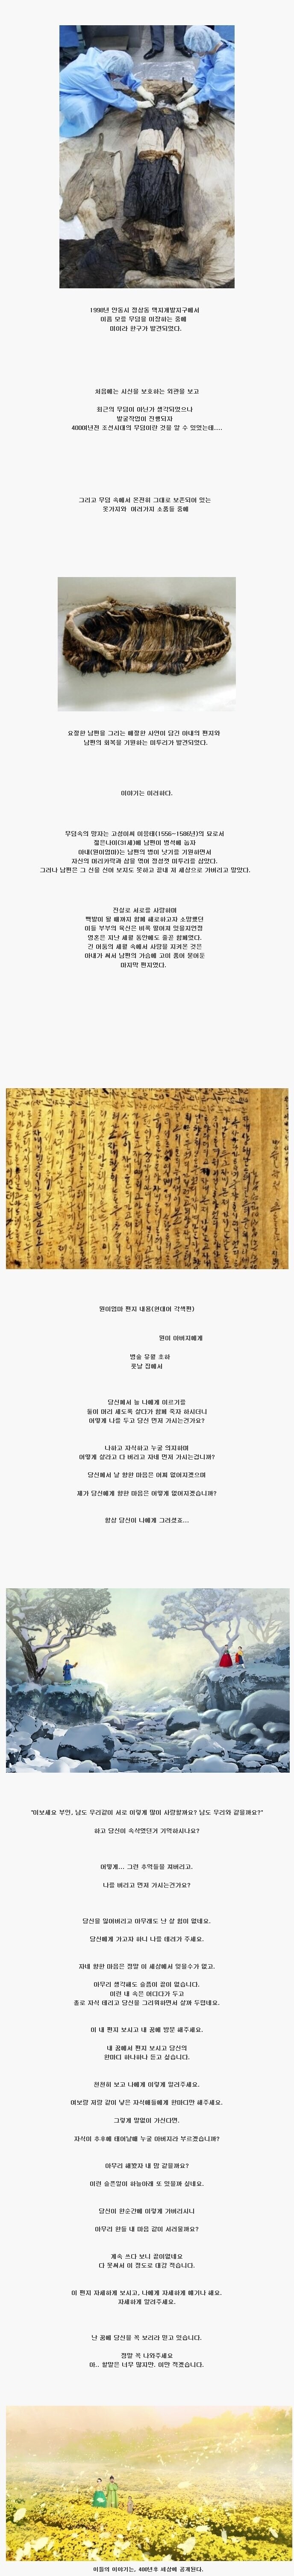 1998년 안동시 정상동 택지개발지구에서
이름 모를 무덤을 이장하는 중에
미이라 한구가 발견되었다.
처음에는 시신을 보호하는 외관을 보고
최근의 무덤이 아닌가 생각되었으나
발굴작업이 진행되자
400여년전 조선시대의 무덤이란 것을 알 수 있었는데....
그리고 무덤 속에서 온전히 그대로 보존되어 있는
옷가지와 여러가지 소품들 중에
요절한 남편을 그리는 애절한 사연이 담긴 아내의 편지와
남편의 회복을 기원하는 미투리가 발견되었다.
이야기는 이러하다.
무덤속의 망자는 고성이씨 이응태(1556~1586년)의 묘로서
젊은나이(31세)에 남편이 병석에 눕자
아내(원이엄마)는 남편의 병이 낫기를 기원하면서
자신의 머리카락과 삼을 엮어 정성껏 미투리를 삼았다.
그러나 남편은 그 신을 신어 보지도 못하고 끝내 저 세상으로 가버리고 말았다.
진실로 서로를 사랑하며
백발이 될 때까지 함께 해로하고자 소망했던
이들 부부의 육신은 비록 떨어져 있을지언정
영혼은 지난 세월 동안에도 줄곧 함께였다.
긴 어둠의 세월 속에서 사랑을 지켜온 것은
아내가 써서 남편의 가슴에 고이 품어 묻어둔
마지막 편지였다.
원이엄마 편지 내용(현대어 각색편)
원이 아버지에게
병술 유월 초하
룻날 집에서
당신께서 늘 나에게 이르기를
둘이 머리 세도록 살다가 함께 죽자 하시더니
어떻게 나를 두고 당신 먼저 가시는건가요?
나하고 자식하고 누굴 의지하며
어떻게 살라고 다 버리고 자네 먼저 가시는겁니까?
당신께서 날 향한 마음은 어찌 없어지겠으며
제가 당신에게 향한 마음은 어떻게 없어지겠습니까?
항상 당신이 나에게 그러셨죠...
"여보세요 부인, 남도 우리같이 서로 이렇게 많이 사랑할까요? 남도 우리와 같을까요?"
하고 당신이 속삭였던거 기억하시나요?
어떻게... 그런 추억들을 져버리고.
나를 버리고 먼저 가시는건가요?
당신을 잃어버리고 아무래도 난 살 힘이 없네요.
당신에게 가고자 하니 나를 데려가 주세요.
자네 향한 마음은 정말 이 세상에서 잊을수가 없고.
아무리 생각해도 슬픔이 끝이 없습니다.
이런 내 속은 어디다가 두고
홀로 자식 데리고 당신을 그리워하면서 살까 두렵네요.
이 내 편지 보시고 내 꿈에 방문 해주세요.
내 꿈에서 편지 보시고 당신의
한마디 하나하나 듣고 싶습니다.
천천히 보고 나에게 이렇게 알려주세요.
여보랑 저랑 같이 낳은 자식애들에게 한마디만 해주세요.
그렇게 말없이 가신다면.
자식이 추후에 태어날때 누굴 아버지라 부르겠습니까?
아무리 해봤자 내 맘 같을까요?
이런 슬픈일이 하늘아래 또 있을까 싶네요.
당신이 한순간에 이렇게 가버리시니
아무리 한들 내 마음 같이 서러울까요?
계속 쓰다 보니 끝이없네요
다 못써서 이 정도로 대강 적습니다.
이 편지 자세하게 보시고, 나에게 자세하게 얘기나 해요.
자세하게 알려주세요.
난 꿈에 당신을 꼭 보리라 믿고 있습니다.
정말 꼭 나와주세요
아.. 할말은 너무 많지만. 이만 적겠습니다.
이들의 이야기는, 400년후 세상에 공개된다.